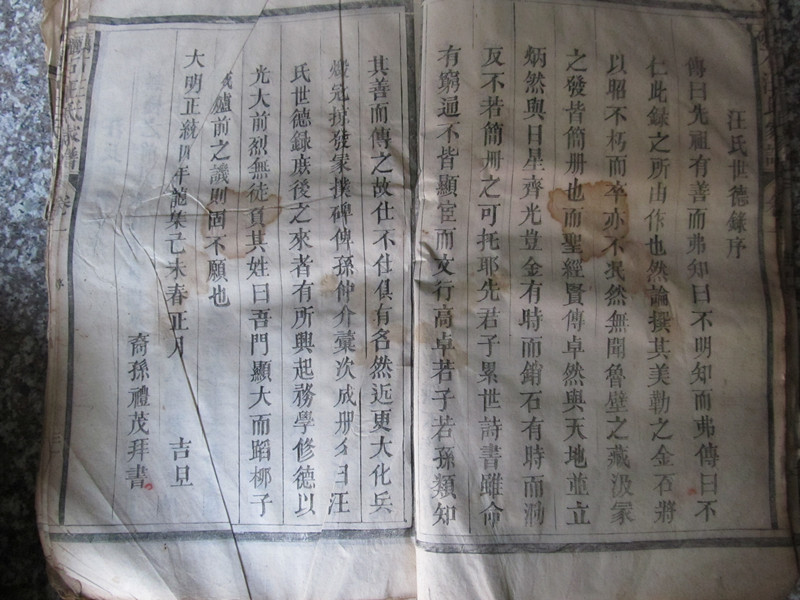 汪氏世德錄序
傳曰先祖有善而弗知曰不明知而弗傳曰不
仁此錄之所由作也然論撰其美勒之金石將
以昭不朽而卒亦不泯然無聞魯壁之藏汲冢
之發皆簡册也而聖經賢傳卓然與天地並立
炳然與日星齊光豈金有時而銷石有時而泐
反不若簡册之可托耶先君子累世詩書雖命
有窮通不皆顯宦而文行高卓若子若孫類知
其善而傳之故仕不仕俱有名然近更大化兵
燬冠掠發家撲碑俾孫仲介彙次成册名曰汪
氏世德錄庶後之來者有所興起務學修德以
光大前烈無徒負其姓曰吾門顯大而蹈梛子
臧鑪前之譏則固不願也
大明正統四年龍集己未春正月 吉旦
裔孫禮茂拜書
石汪氏家譜 卷一 序 三